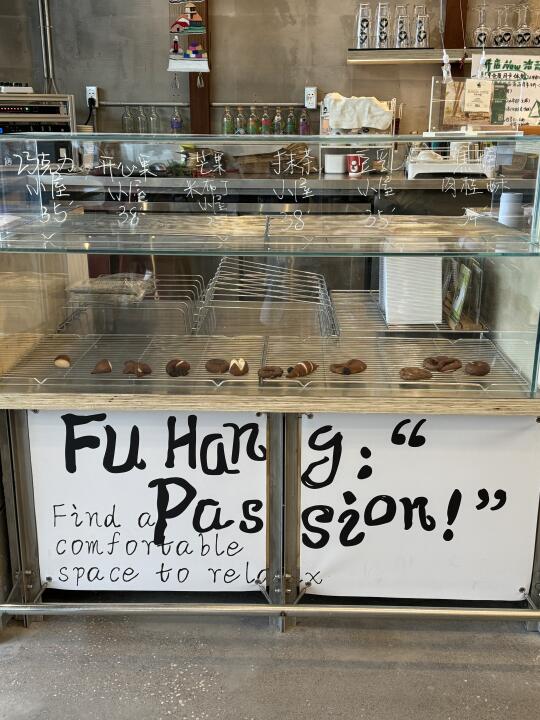 开店New活动
巧克力 开心果 芒果 抹茶 豆乳
小屋 小屋 米布丁 小屋 小屋 肉桂酥
小屋
35 38 38 35
Fu Hang:“
Passion!”
Find a
comfortable
space to relax